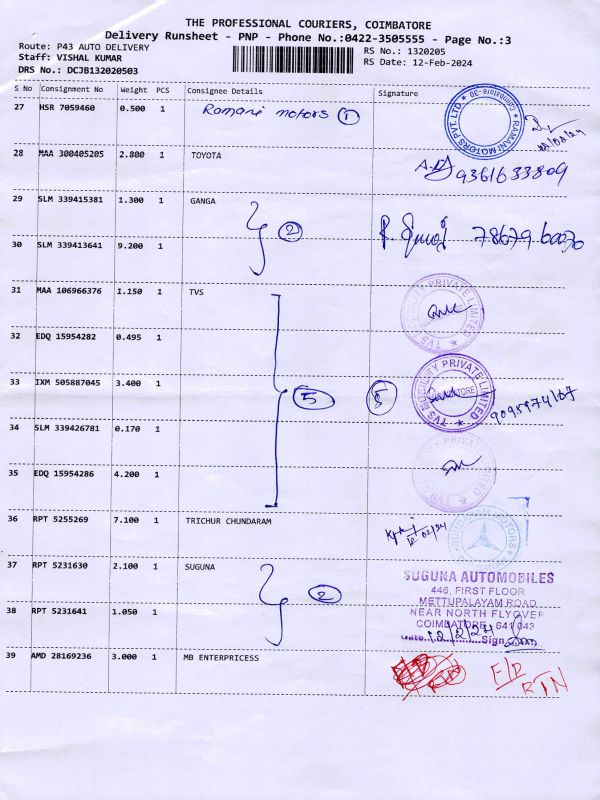 THE PROFESSIONAL COURIERS, COIMBATORE
Delivery Runsheet - PNP - Phone No.:0422-3505555 - Page No.:3
Route: P43 AUTO DELIVERY
RS No.: 1320205
Staff: VISHAL KUMAR
RS Date: 12-Feb-2024
DRS No.: DCJB132020503
S No Consignment No Weight PCS Consignee Details Signature
27 HSR 7059460 0.500 1 Ramani motors 1
RAMANI MOTORS PVT. LTD Coimbatore-30
28 MAA 300405205 2.800 1 TOYOTA 9361633809
29 SLM 339415381 1.300 1 GANGA
2
30 SLM 339413641 9.200 1
31 MAA 106966376 1.150 1 TVS
PRIVATE LIMITED TVS
32 EDQ 15954282 0.495 1
33 IXM 505887045 3.400 1 5
TVS MOBILITY PRIVATE LIMITED
34 SLM 339426781 0.170 1
35 EDQ 15954286 4.200 1
36 RPT 5255269 7.100 1 TRICHUR CHUNDARAM 12/02/24
SUNDARAM MOTORS
37 RPT 5231630 2.100 1 SUGUNA
2
SUGUNA AUTOMOBILES
446, FIRST FLOOR
METTUPALAYAM ROAD
NEAR NORTH FLYOVER
COIMBATORE - 641 043
Date 12/2/24 Sign
38 RPT 5231641 1.050 1
39 AMD 28169236 3.000 1 MB ENTERPRICESS
RTN